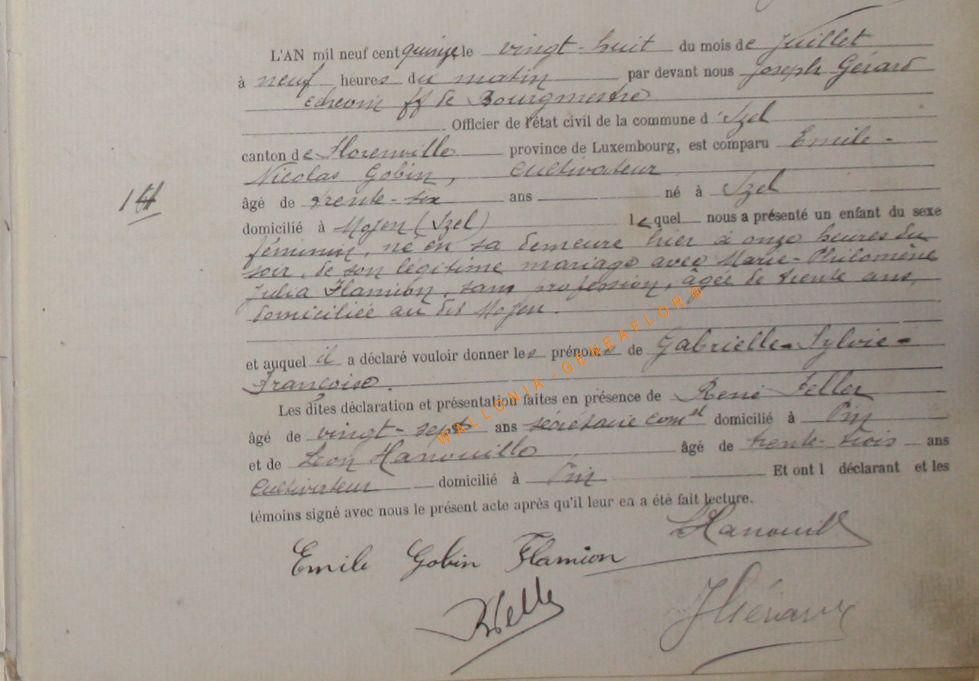 L'AN mil neuf cent quinze le vingt-huit du mois de Juillet
à neuf heures du matin par devant nous Joseph Gérard
échevin ff de Bourgmestre
Officier de l'état civil de la commune d'Izel
canton de Florenville province de Luxembourg, est comparu Emile-
Nicolas Gobin, cultivateur
âgé de trente-six ans né à Izel
14
domicilié à Moyen (Izel) lequel nous a présenté un enfant du sexe
féminin, né en sa demeure hier à onze heures du
soir, de son légitime mariage avec Marie-Philomène
Julia Flamion, sans profession, âgée de trente ans,
domiciliée au dit Moyen.
et auquel il a déclaré vouloir donner les prénoms de Gabrielle-Sylvie-
Françoise.
Les dites déclaration et présentation faites en présence de René Feller
âgé de vingt-sept ans secrétaire comal domicilié à Pin
et de Léon Hanouille âgé de trente-trois ans
cultivateur domicilié à Pin Et ont l déclarant et les
témoins signé avec nous le présent acte après qu'il leur en a été fait lecture.
LHanouill
Emile Gobin Flamion
RFelle
JGérard
WALLONIA-GENEAFLOR®